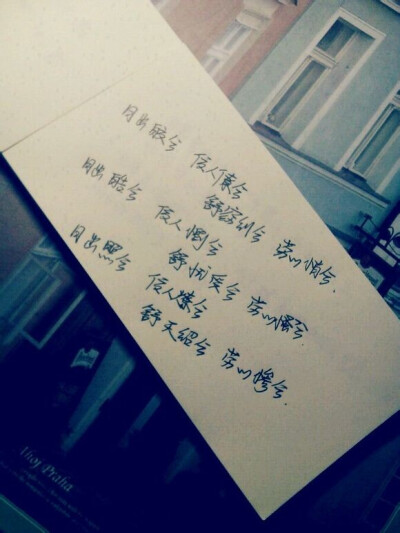 月出皎兮 佼人僚兮
舒窈纠兮 劳心悄兮.
月出皓兮 佼人懰兮
舒忧受兮 劳心慅兮.
月出照兮 佼人燎兮
舒夭绍兮 劳心惨兮.
Ahoj Praha